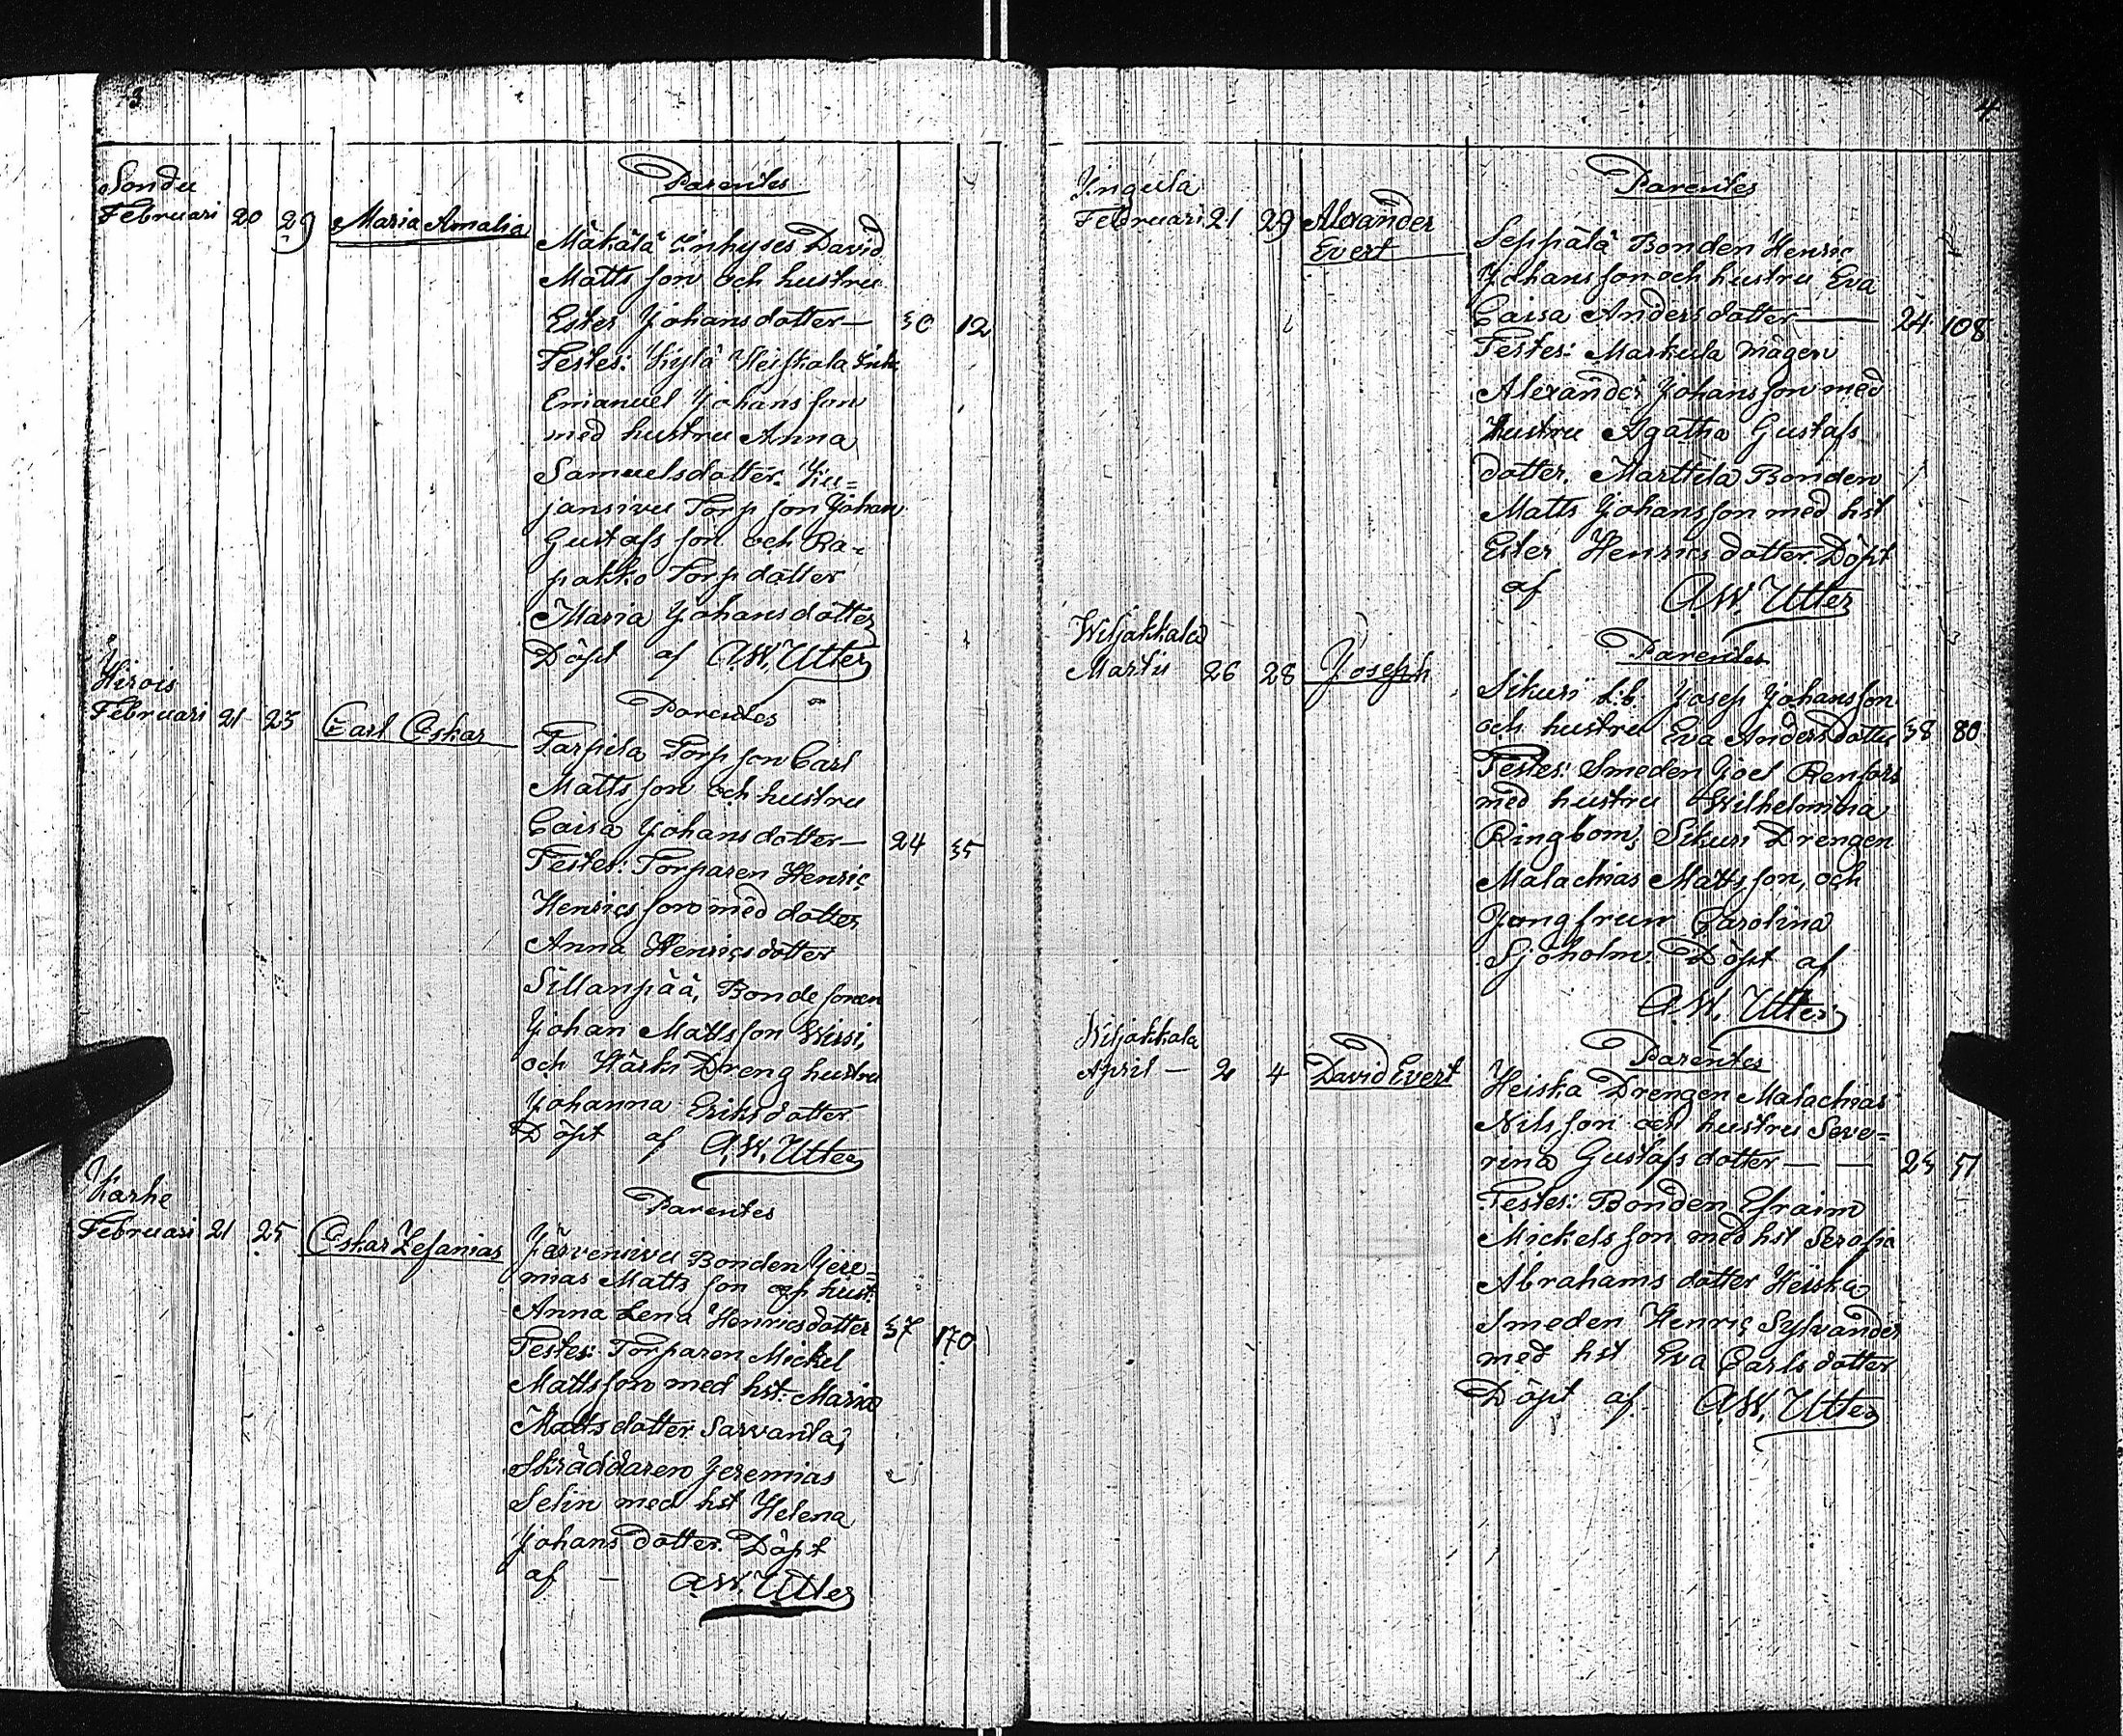 3
Sondu
Februari 20 29 Maria Amalia
Parentes
Mäkälä Inhyses David
Matts son och hustru
Ester Johansdotter — 30 12
Testes: Kylä Heiskala
Emanuel Johansson
med hustru Anna
Samuelsdotter. Ku=
jansivu Torp son Johan
Gustafs son och Ra=
pakko Torp dotter
Maria Johansdotter
Döpt af A.W. Utter
Hirvis
Februari 21 25 Carl Oskar
Parentes
Tarpila Torp son Carl
Matts son och hustru
Caisa Johansdotter — 24 35
Testes: Torparen Henric
Henrics son med dotter
Anna Henricsdotter
Sillanpää, Bonde sonen
Johan Mattsson
och Härki Dreng hustru
Johanna Eriksdotter
Döpt af A.W. Utter
Karhe
Februari 21 25 Oskar Zefanias
Parentes
Järvensivu Bonden Jere=
mias Matts son och hust.
Anna Lena Henricsdotter 37 170
Testes: Torparen Mickel
Mattsson med hst. Maria
Mattsdotter Sarvanla;
Skräddaren Jeremias
Selin med hst Helena
Johansdotter. Döpt
af — A.W. Utter
4
Yngula
Februari 21 29 Alexander
Evert
Parentes
Seppälä Bonden Henric
Johansson och hustru Eva
Caisa Andersdotter — 24 108
Testes: Markula mågen
Alexander Johansson med
hustru Agatha Gustafs
dotter. Marttila Bonden
Matts Johansson med hst
Ester Henricsdotter. Döpt
af A.W. Utter
Wiljakkala
Martii 26 28 Joseph
Parentes
Sikuri Josep Johansson
och hustru Eva Andersdotter 38 80
Testes: Smeden Joel Renfors
med hustru Wilhelmina
Ringbom; Sikuri Drengen
Malachias Mattsson, och
Jungfrun Carolina
Sjöholm. Döpt af
A.W. Utter
Wiljakkala
April — 2 4 David Evert
Parentes
Heiska Drengen Malachias
Nilsson och hustru Seve=
rina Gustafsdotter — — 23 51
Testes: Bonden Efraim
Mickelsson med hst Serafia
Abrahams dotter Heiska
Smeden Henric Sylvander
med hst Eva Carlsdotter
Döpt af A.W. Utter